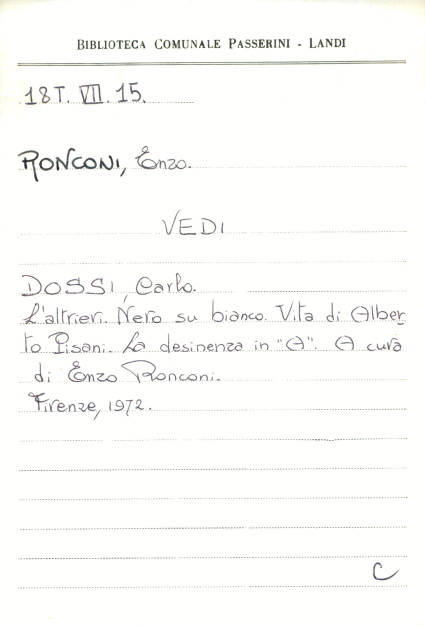 BIBLIOTECA COMUNALE PASSERINI - LANDI
18T. VII. 15.
RONCONI, Enzo.
VEDI
DOSSI, Carlo.
L'altrieri. Nero su bianco. Vita di Alber
to Pisani. La desinenza in "A". A cura
di Enzo Ronconi.
Firenze, 1972.
C